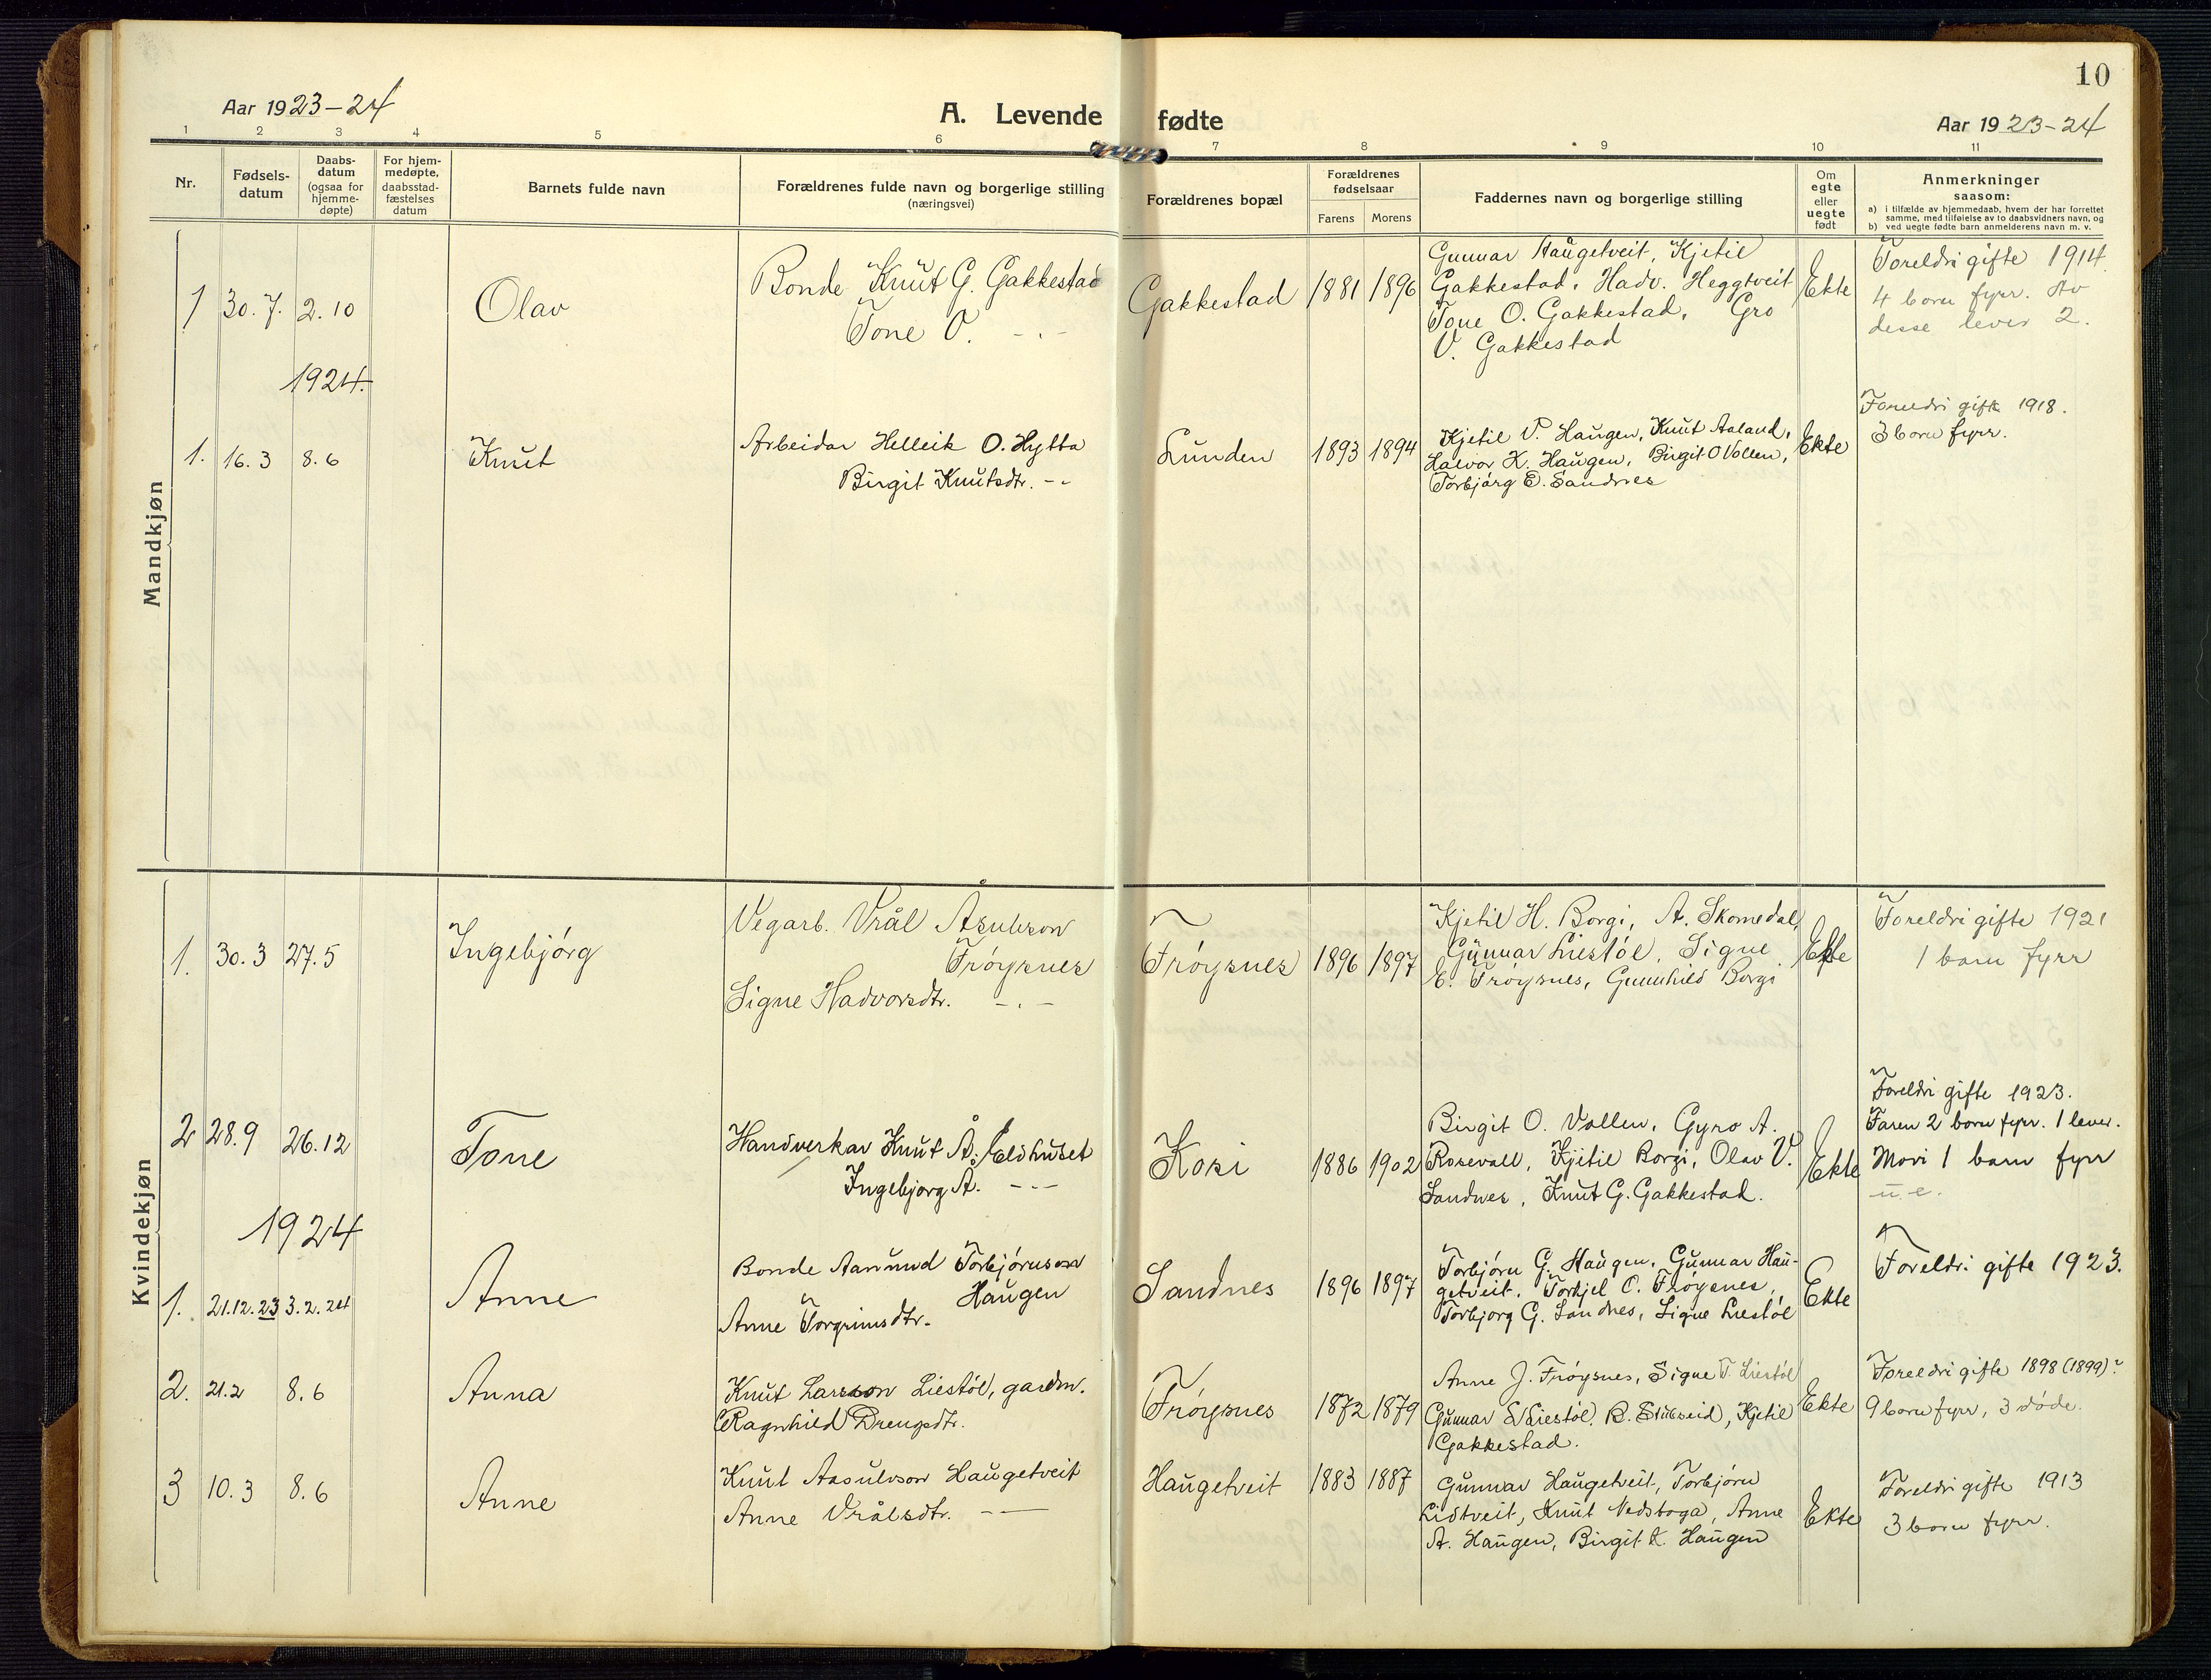 10
Aar 1923-24
A. Levende fødte
Aar 1923-24
1 2 3 4 5 6 7 8 9 10 11
Nr.
Fødsels-
datum
Daabs-
datum
(ogsaa for
hjemme-
døpte)
For hjem-
medøpte,
daabsstad-
fæstelses
datum
Barnets fulde navn
Forældrenes fulde navn og borgerlige stilling
(næringsvei)
Forældrenes bopæl
Forældrenes
fødselsaar
Farens Morens
Faddernes navn og borgerlige stilling
Om
egte
eller
uegte
født
Anmerkninger
saasom:
a) i tilfælde av hjemmedaab, hvem der har forrettet
samme, med tilføielse av to daabsvidners navn, og
b) ved uegte fødte barn anmelderens navn m. v.
Mandkjøn
1 30.7. 2.10
Olav
Bonde Knut G. Gakkestad
Tone O. -.-
Gakkestad
1881 1896
Gunnar Haugetveit, Kjetil
Gakkestad, Hadv. Heggtveit
Tone O. Gakkestad, Gro
V. Gakkestad
Ekte
Foreldri gifte 1914.
4 born fyrr. Av
desse lever 2.
1924.
1. 16.3 8.6
Knut
Arbeidar Helleik O. Hytta
Birgit Knutsdtr. --
Lunden
1893 1894
Kjetil V. Haugen, Knut Aaland,
Halvor K. Haugen, Birgit O Vollen,
Torbjørg E. Sandnes
Ekte
Foreldri gifte 1918.
3 born fyrr.
Kvindekjøn
1. 30.3 27.5
Ingebjørg
Vegarb. Vrål Åsulvson
Frøysnes
Signe Hadvorsdtr. -.-
Frøysnes
1896 1897
Kjetil H. Borgi, A. Skomedal,
Gunnar Liestøl, Signe
E. Frøysnes, Gunnhild Borgi
Ekte
Foreldri gifte 1921
1 barn fyrr
2 28.9 26.12
Tone
Handverkar Knut Å. Eldhuset
Ingebjørg A. ---
Kosi
1886 1902
Birgit O. Vollen, Gyro A.
Rosevall, Kjetil Borgi, Olav V.
Sandnes, Knut G. Gakkestad.
Ekte
Foreldri gifte 1923.
Faren 2 born fyrr. 1 lever.
Mori 1 barn fyrr
u. e.
1924
1. 21.12.23 3.2.24
Anne
Bonde Aanund Torbjørnson
Haugen
Anne Torgrimsdtr.
Sandnes
1896 1897
Torbjørn G. Haugen, Gunnar Hau-
getveit, Torkjel O. Frøysnes,
Torbjørg G. Sandnes, Signe Liestøl
Ekte
Foreldri gifte 1923.
2. 21.2 8.6
Anna
Knut Larsson Liestøl, gardm.
Ragnhild Drengsdtr.
Frøysnes
1872 1879
Anne J. Frøysnes, Signe T. Liestøl
Gunnar Liestøl, B. Stubseid, Kjetil
Gakkestad.
Ekte
Foreldri gifte 1898 (1899)?
9 born fyrr, 3 døde.
3 10.3 8.6
Anne
Knut Aasulvson Haugetveit
Anne Vrålsdtr. --
Haugetveit
1883 1887
Gunnar Haugetveit, Torbjørn
Lidtveit, Knut Nedstoga, Anne
A. Haugen, Birgit K. Haugen
Ekte
Foreldri gifte 1913
3 born fyrr.